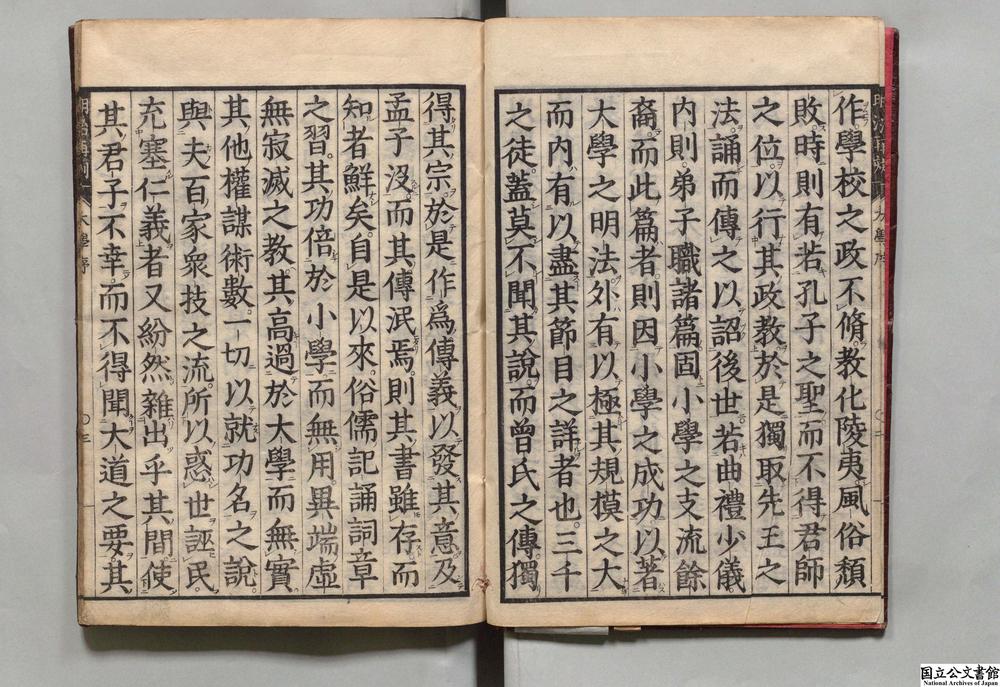 作學校之政不脩教化陵夷風俗頹
敗時則有若孔子之聖而不得君師
之位以行其政教於是獨取先王之
法誦而傳之以詔後世若曲禮少儀
內則弟子職諸篇固小學之支流餘
裔而此篇者則因小學之成功以著
大學之明法外有以極其規模之大
而內有以盡其節目之詳者也三千
之徒蓋莫不聞其說而曾氏之傳獨
得其宗於是作爲傳義以發其意及
孟子沒而其傳泯焉則其書雖存而
知者鮮矣自是以來俗儒記誦詞章
之習其功倍於小學而無用異端虛
無寂滅之教其高過於大學而無實
其他權謀術數一切以就功名之說
與夫百家衆技之流所以惑世誣民
充塞仁義者又紛然雜出乎其間使
其君子不幸而不得聞大道之要其
大學序
国立公文書館
National Archives of Japan